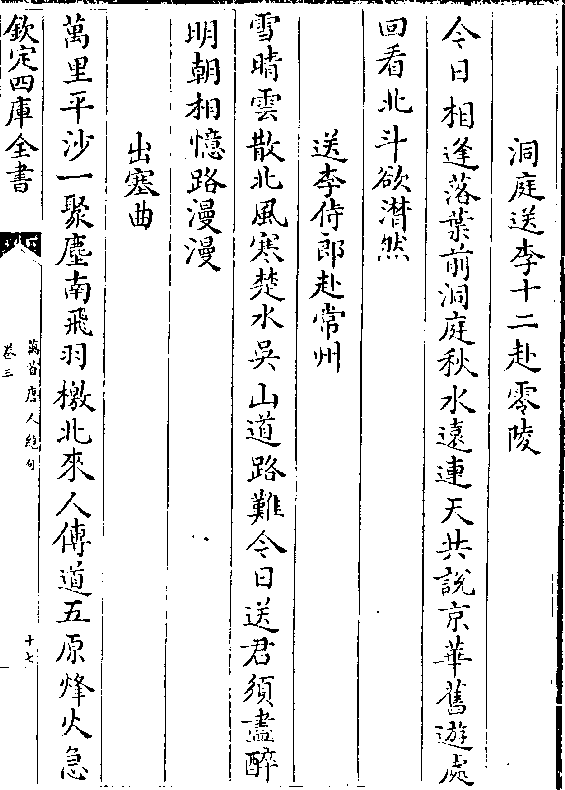 洞庭送李十二赴零陵
今日相逢落葉前洞庭秋水遠連天共說京華舊遊處
回看北斗欲潸然
送李侍郎赴常州
雪晴雲散北風寒楚水吳山道路難今日送君須盡醉
明朝相憶路漫漫
出塞曲
萬里平沙一聚塵南飛羽檄北來人傳道五原烽火急
欽定四庫全書
萬首唐人絕句
卷三
十七